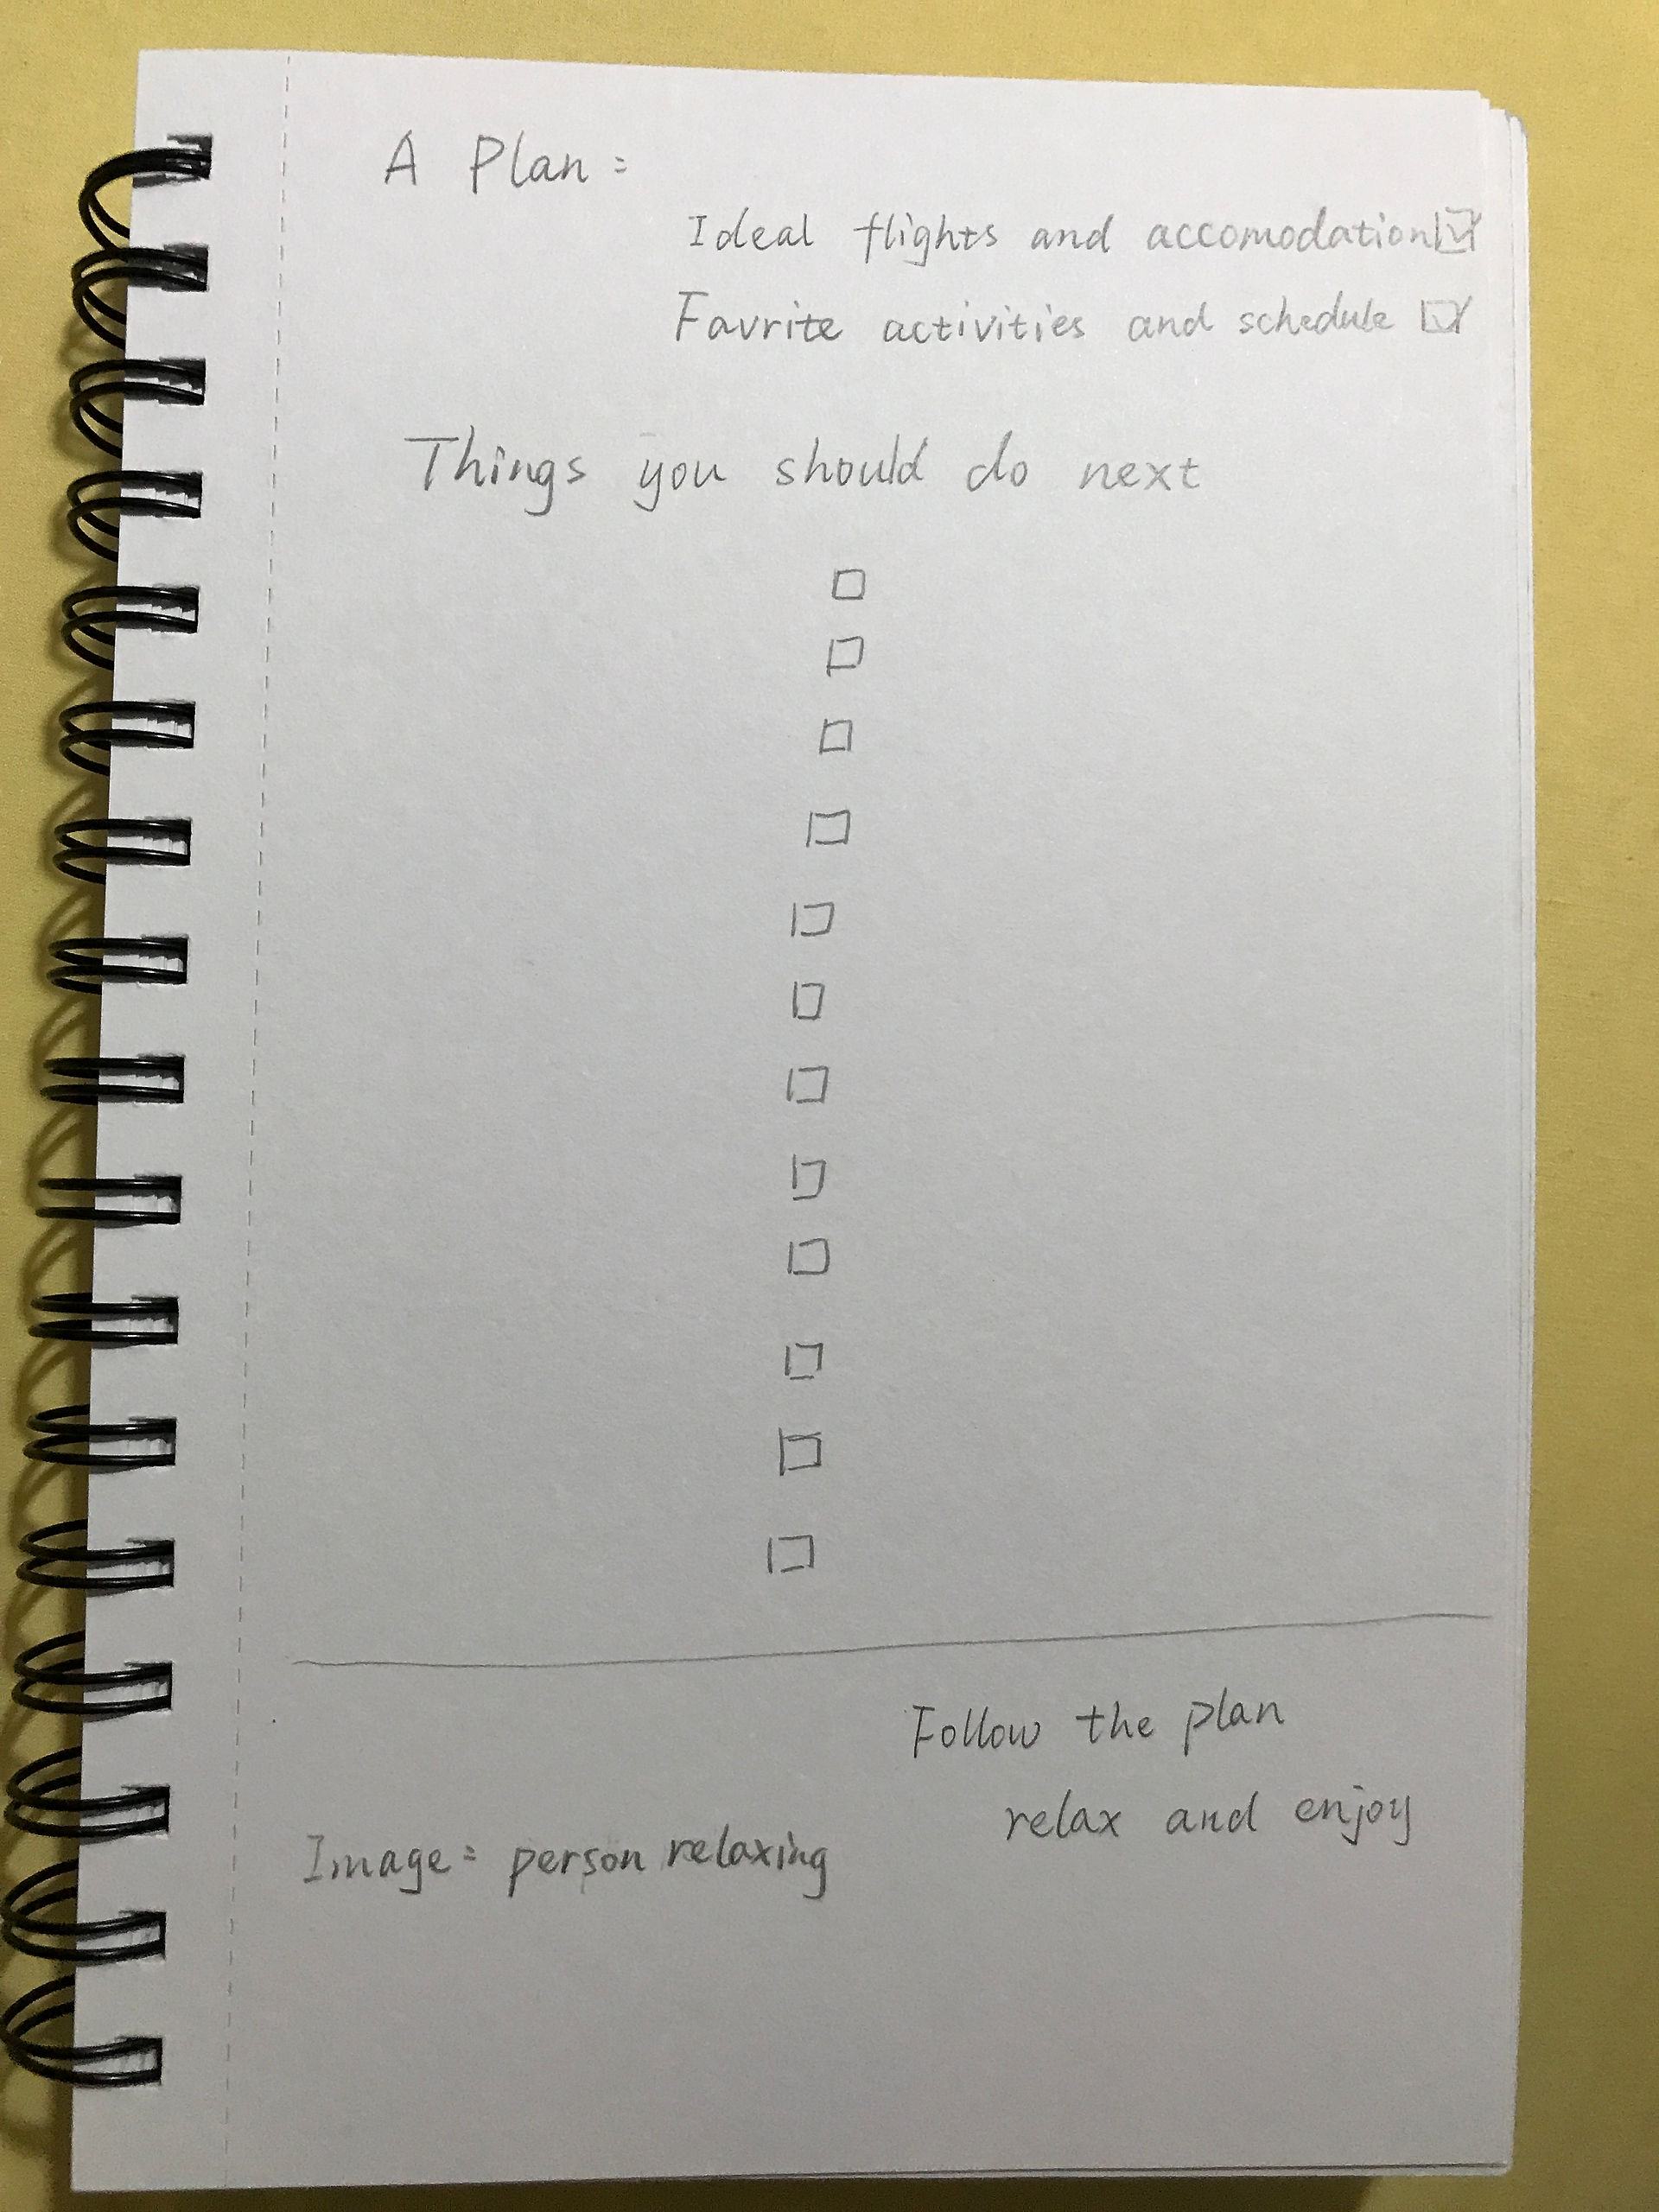 A Plan:
Ideal flights and accomodation ☑
Favrite activities and schedule ☑
Things you should do next
☐
☐
☐
☐
☐
☐
☐
☐
☐
☐
☐
☐
Follow the plan
relax and enjoy
Image: person relaxing